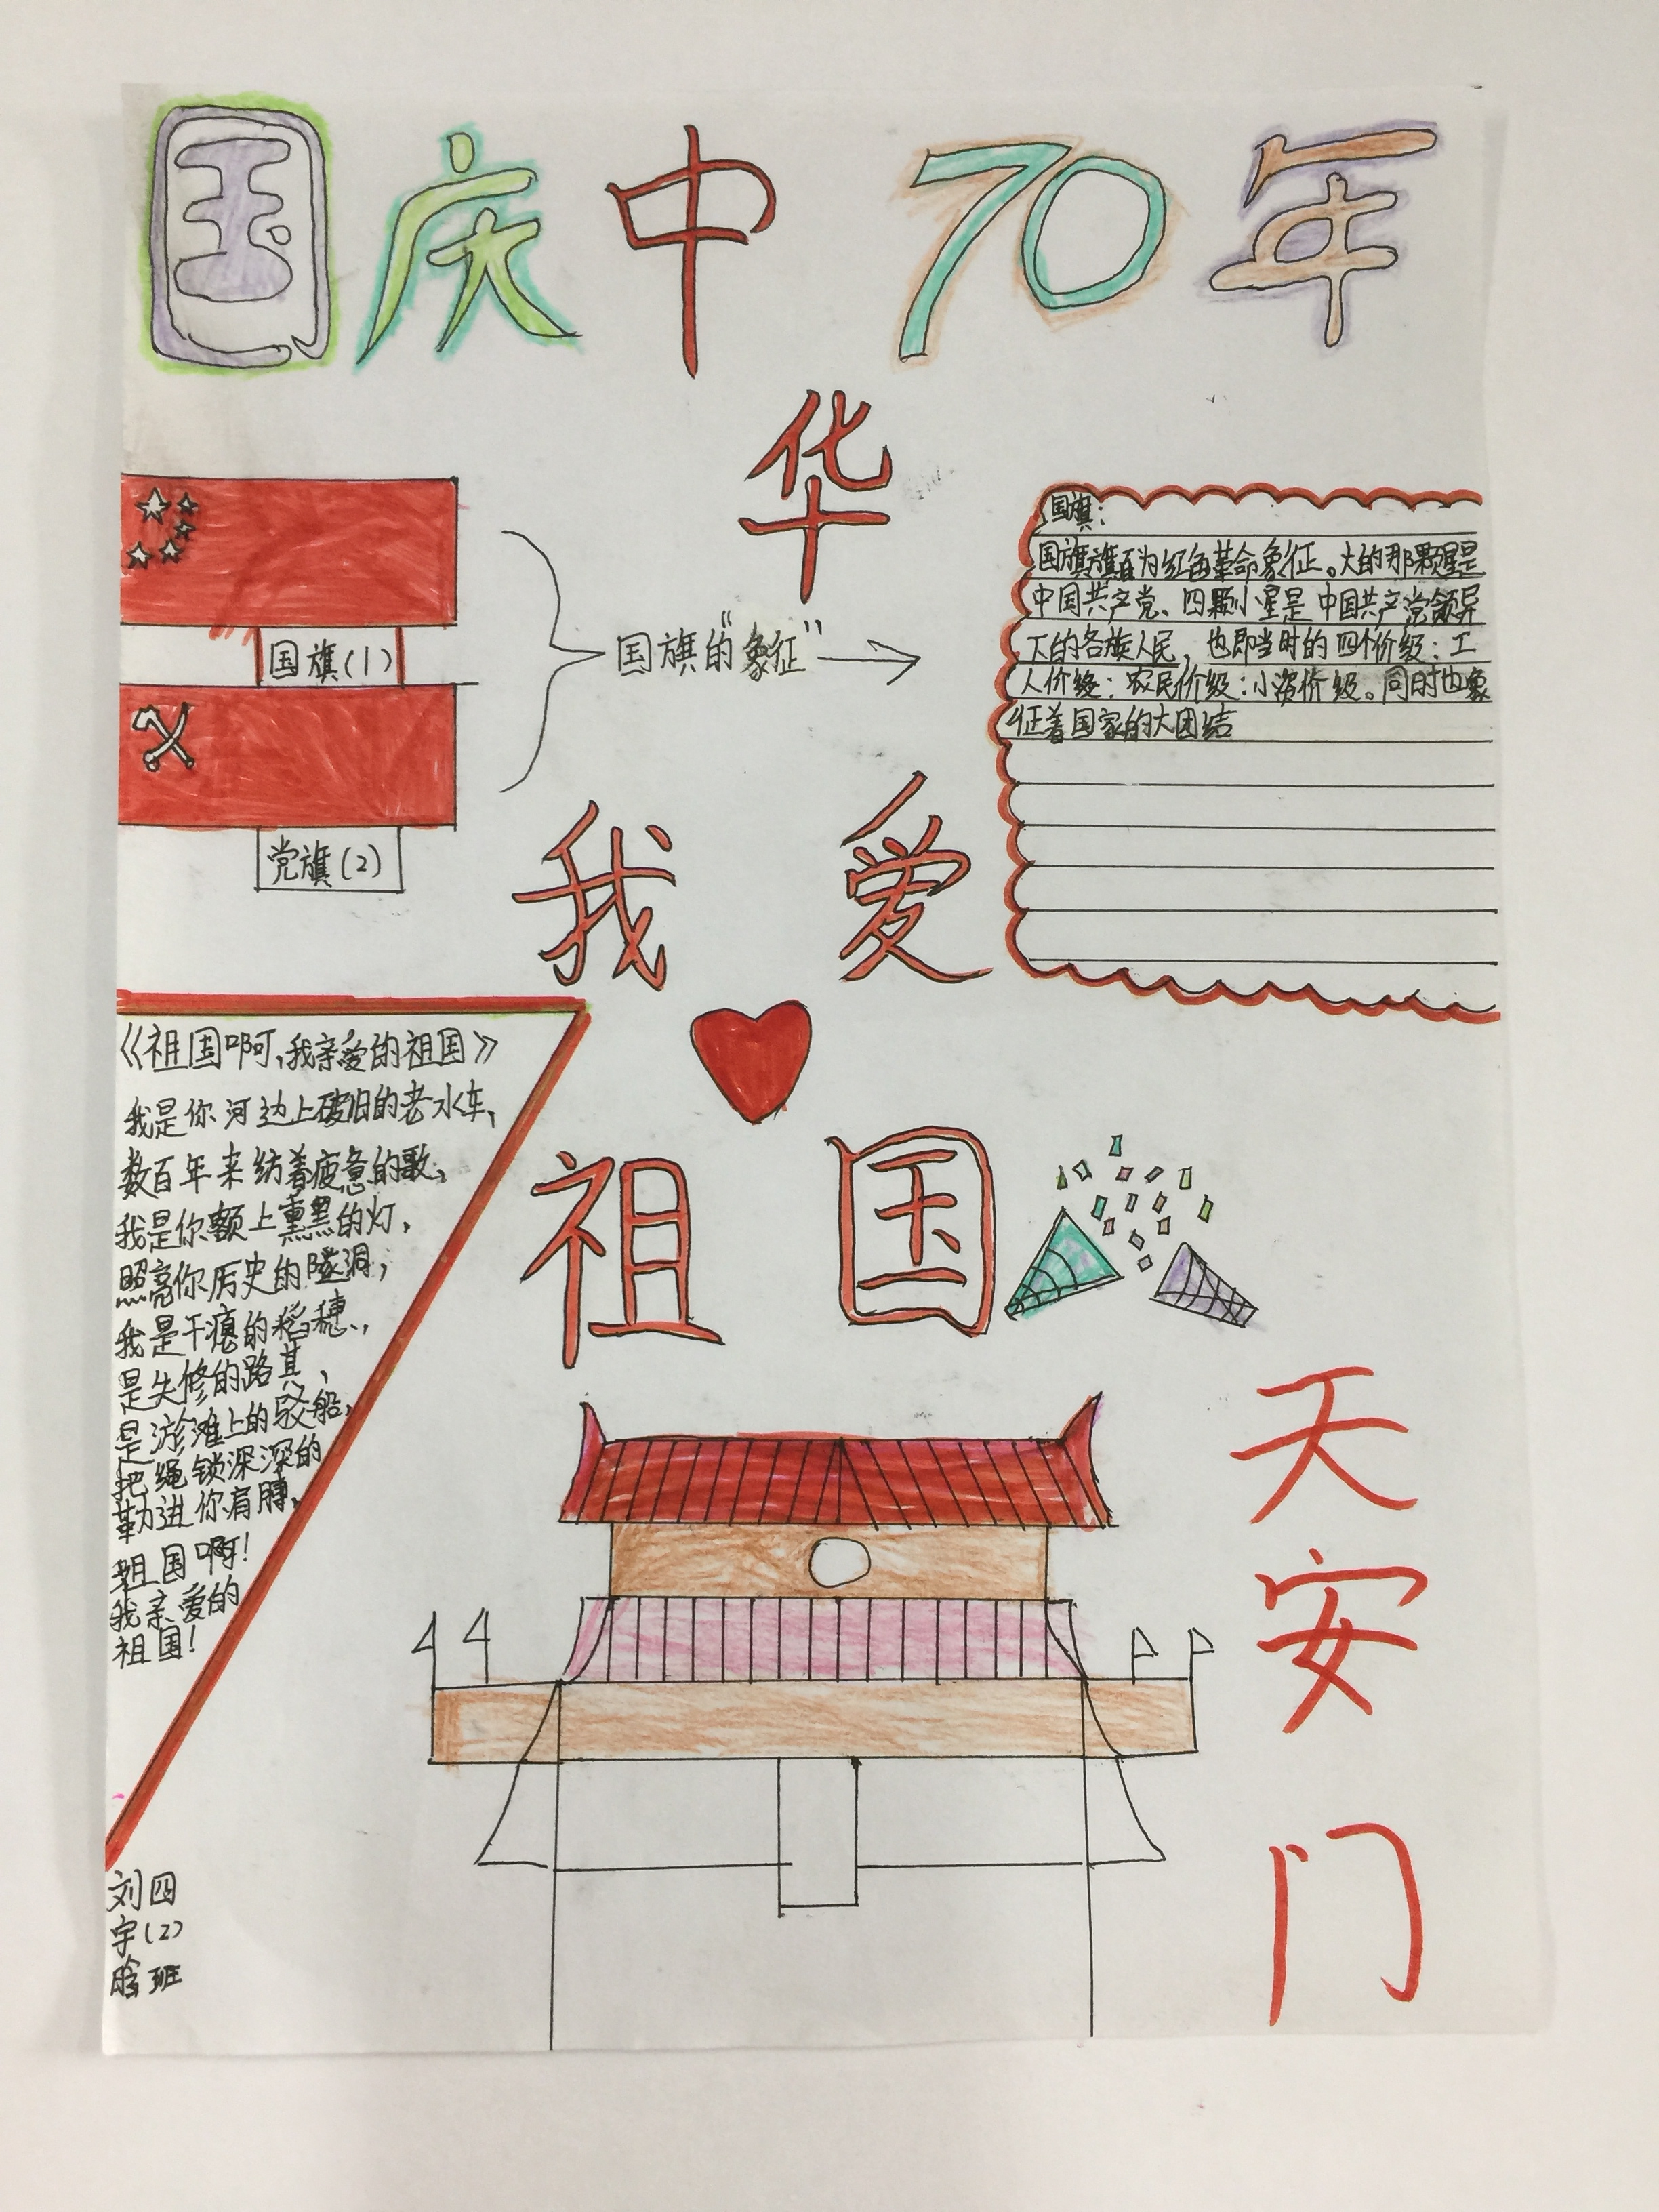 国庆中 70年
华
国旗(1)
党旗(2)
国旗的"象征"
国旗:
国旗旗面为红色革命象征。大的那颗星是
中国共产党、四颗小星是中国共产党领导
下的各族人民,也即当时的四个价级:工
人价级:农民价级:小资价级。同时也象
征着国家的大团结
我 爱
祖 国
《祖国啊,我亲爱的祖国》
我是你河边上破旧的老水车,
数百年来纺着疲惫的歌,
我是你额上熏黑的灯,
照亮你历史的隧洞;
我是干瘪的稻穗,
是失修的路其,
是淤滩上的驳船,
把绳锁深深的
勒进你肩膊,
祖国啊!
我亲爱的
祖国!
天
安
门
刘 四
宇 (2)
晗 班